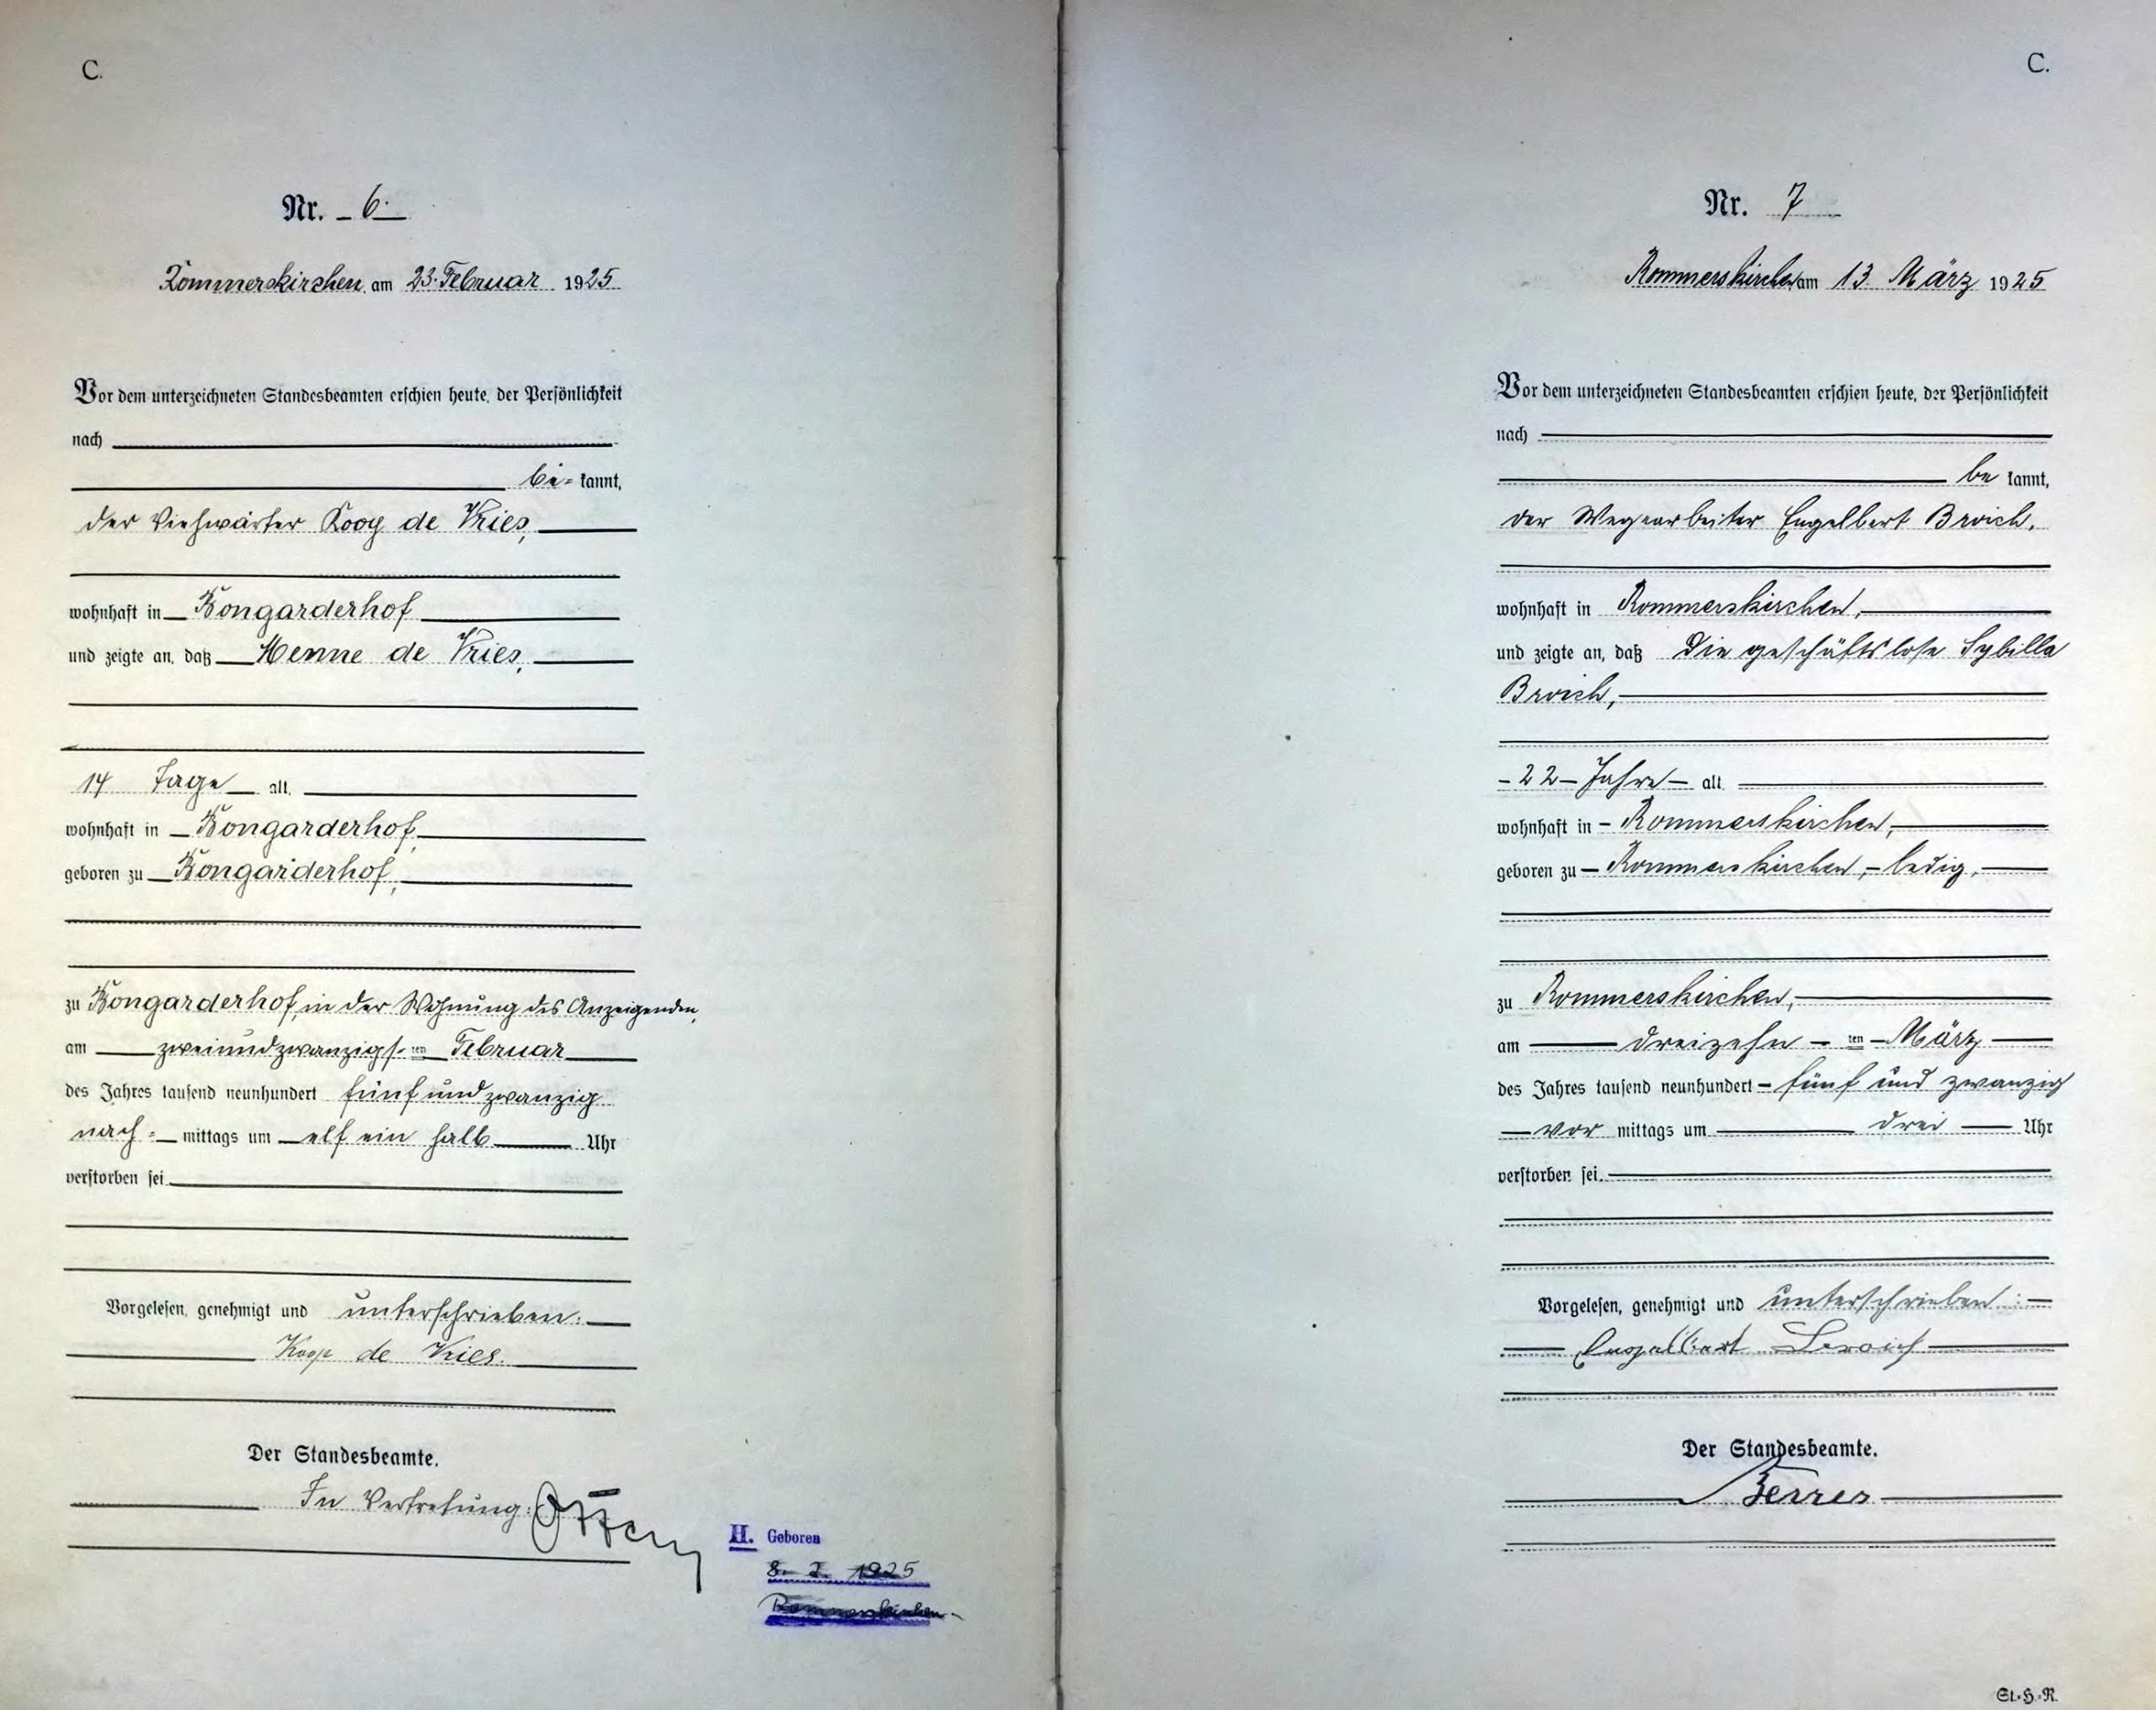 C.
Nr. 6.
Rommerskirchen, am 23. Februar 1925
Vor dem unterzeichneten Standesbeamten erschien heute, der Persönlichkeit
nach
be= kannt,
der Viehwärter Koop de Vries,
wohnhaft in Bongarderhof
und zeigte an, daß Menne de Vries,
14 Tage alt,
wohnhaft in Bongarderhof,
geboren zu Bongarderhof,
zu Bongarderhof, in der Wohnung des Anzeigenden,
am zweiundzwanzigs- ten Februar
des Jahres tausend neunhundert fünfundzwanzig
nach= mittags um elf ein halb Uhr
verstorben sei.
Vorgelesen, genehmigt und unterschrieben.
Koop de Vries.
Der Standesbeamte.
In Vertretung:
H. Geboren
8. 2. 1925
Rommerskirchen.
C.
Nr. 7
Rommerskirchen am 13. März 1925
Vor dem unterzeichneten Standesbeamten erschien heute, der Persönlichkeit
nach
be kannt,
der Wegearbeiter Engelbert Broich,
wohnhaft in Rommerskirchen,
und zeigte an, daß die geschäftslose Sybilla
Broich,
- 22 - Jahre - alt,
wohnhaft in - Rommerskirchen,
geboren zu - Rommerskirchen, - ledig,
zu Rommerskirchen,
am dreizehn - ten - März
des Jahres tausend neunhundert - fünf und zwanzig
vor mittags um drei Uhr
verstorben sei.
Vorgelesen, genehmigt und unterschrieben :
Engelbert Broich
Der Standesbeamte.
St.=H.=R.